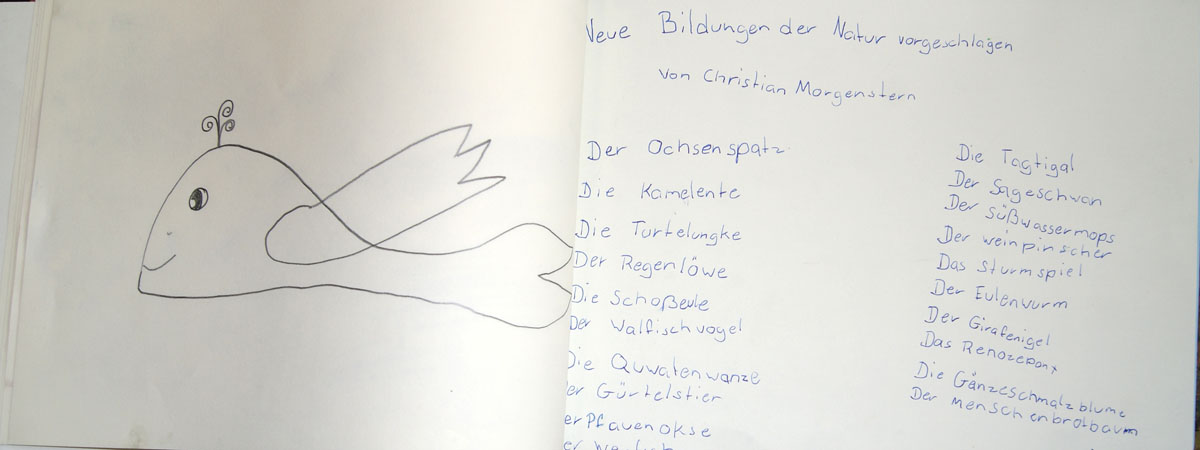 Neue Bildungen der Natur vorgeschlagen
von Christian Morgenstern
Der Ochsenspatz
Die Kamelente
Die Turtelungke
Der Regenlöwe
Die Schoßeule
Der Walfischvogel
Die Quwatenwanze
er Gürtelstier
er Pfauenokse
Die Tagtigal
Der Sägeschwan
Der Süßwassermops
Der weinpinscher
Das Sturmspiel
Der Eulenwurm
Der Girafenigel
Das Renozepony
Die Gänzeschmalzblume
Der menschenbrotbaum